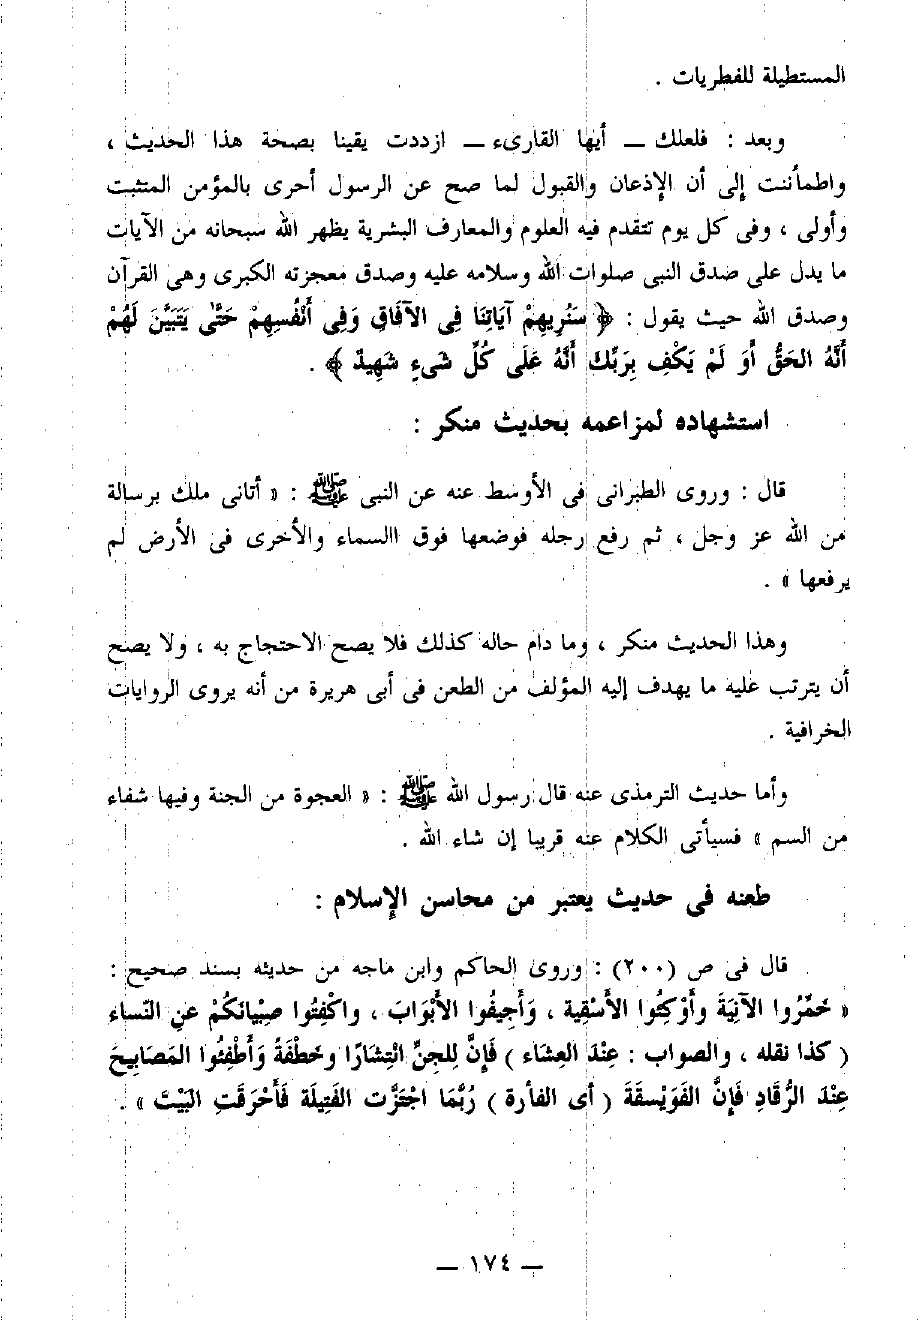 المستطيلة للفطريات .
وبعد : فلعلك ــ أيها القارىء ــ ازددت يقينا بصحة هذا الحديث ،
واطمأننت إلى أن الإذعان والقبول لما صح عن الرسول أحرى بالمؤمن المتثبت
وأولى ، وفى كل يوم تتقدم فيه العلوم والمعارف البشرية يظهر الله سبحانه من الآيات
ما يدل على صدق النبى صلوات الله وسلامه عليه وصدق معجزته الكبرى وهى القرآن
وصدق الله حيث يقول : ﴿ سَنُرِيهِمْ آيَاتِنَا فِى الآفَاقِ وَفِى أَنْفُسِهِمْ حَتَّى يَتَبَيَّنَ لَهُمْ
أَنَّهُ الحَقُّ أَوَ لَمْ يَكْفِ بِرَبِّكَ أَنَّهُ عَلَى كُلِّ شَىءٍ شَهِيدٌ ﴾ .
استشهاده لمزاعمه بحديث منكر :
قال : وروى الطبرانى فى الأوسط عنه عن النبى ﷺ : « أتانى ملك برسالة
من الله عز وجل ، ثم رفع رجله فوضعها فوق االسماء والأخرى فى الأرض لم
يرفعها » .
وهذا الحديث منكر ، وما دام حاله كذلك فلا يصح الاحتجاج به ، ولا يصح
أن يترتب عليه ما يهدف إليه المؤلف من الطعن فى أبى هريرة من أنه يروى الروايات
الخرافية .
وأما حديث الترمذى عنه قال رسول الله ﷺ : « العجوة من الجنة وفيها شفاء
من السم » فسيأتى الكلام عنه قريبا إن شاء الله .
طعنه فى حديث يعتبر من محاسن الإسلام :
قال فى ص (٢٠٠) : وروى الحاكم وابن ماجه من حديثه بسند صحيح :
« خَمِّرُوا الآنِيَةَ وأَوْكِئُوا الأَسْقِية ، وَأَجِيفُوا الأَبْوَابَ ، واكْفِتُوا صِبْيَانَكُمْ عَنِ النِّسَاء
( كذا نقله ، والصواب : عِنْدَ العِشَاء ) فَإِنَّ لِلجِنِّ انْتِشَارًا وخَطْفَةً وَأَطْفِئُوا المَصَابِيحَ
عِنْدَ الرُّقَادِ فَإِنَّ الفُوَيْسِقَةَ ( أى الفأرة ) رُبَّمَا اجْتَرَّت الفَتِيلَة فَأَحْرَقَتِ البَيْتَ » .
ــ ١٧٤ ــ